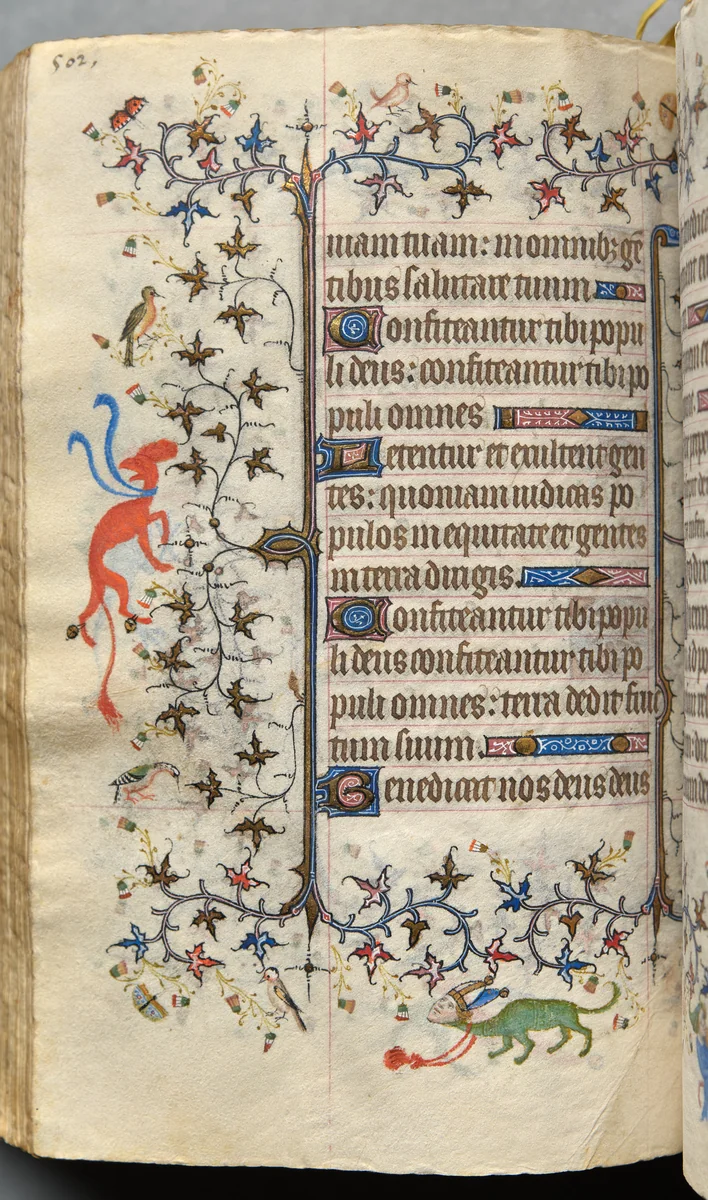 502,
uiam tuam: in omnib; gē
tibus salutare tuum
Confiteantur tibi popu
li deus: confiteantur tibi po
puli omnes
Letentur et exultent gen
tes: quoniam iudicas po
pulos in equitate et gentes
in terra dirigis.
Confiteantur tibi popu
li deus confiteantur tibi po
puli omnes: terra dedit fruc
tum suum.
Benedicat nos deus deus